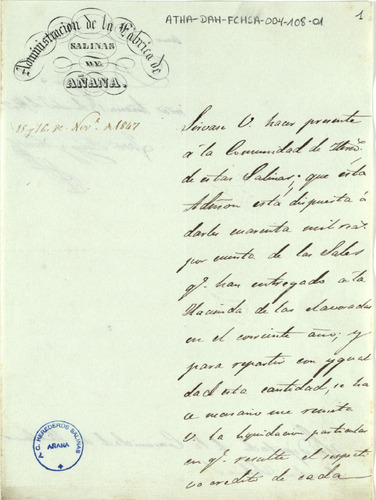 ATHA-DAH-FCHSA-004-108-01
1
Administracion de la Fábrica de
SALINAS
DE
AÑANA.
15 y 16 de Nov.e de 1847
Sirvase V. hacer presente
á la Comunidad de Hero.s
de estas Salinas, que esta
Admon está dispuesta á
darles cuarenta mil rs.
por cuenta de las Sales
q.e han entregado a la
Hacienda de las elavoradas
en el corriente año; y
para repartir con ygual
dad esta cantidad, se ha
ce necesario me remita
V. la liquidacion particular
en q.e resulte el respecti
vo credito de cada
A. C. HEREDEROS SALINAS
AÑANA